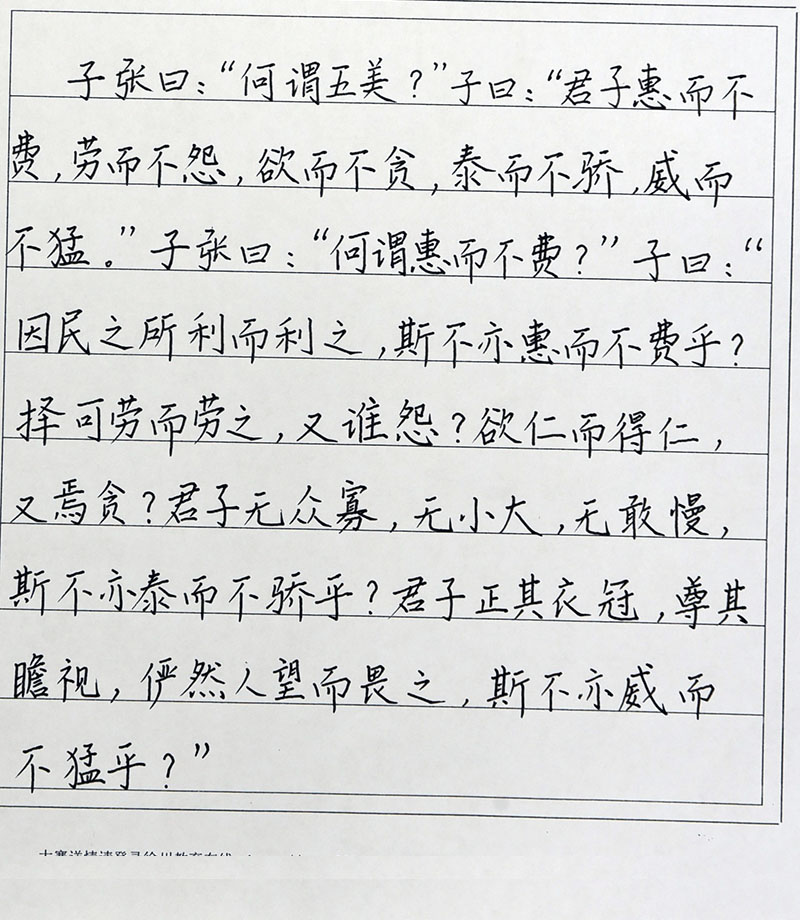 子张曰：“何谓五美？”子曰：“君子惠而不
费，劳而不怨，欲而不贪，泰而不骄，威而
不猛。”子张曰：“何谓惠而不费？”子曰：“
因民之所利而利之，斯不亦惠而不费乎？
择可劳而劳之，又谁怨？欲仁而得仁，
又焉贪？君子无众寡，无小大，无敢慢，
斯不亦泰而不骄乎？君子正其衣冠，尊其
瞻视，俨然人望而畏之，斯不亦威而
不猛乎？”